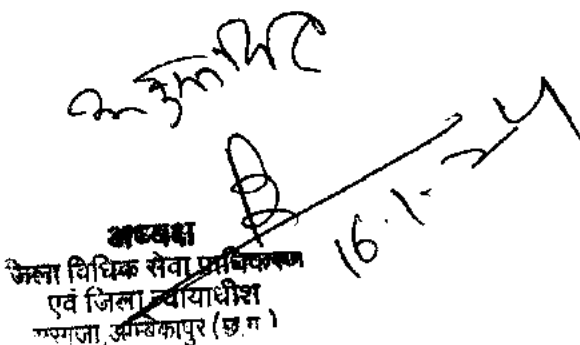 अनुमोदित
16.1.24
अध्यक्ष
जिला विधिक सेवा प्राधिकरण
एवं जिला न्यायाधीश
सरगुजा अम्बिकापुर (छ.ग.)